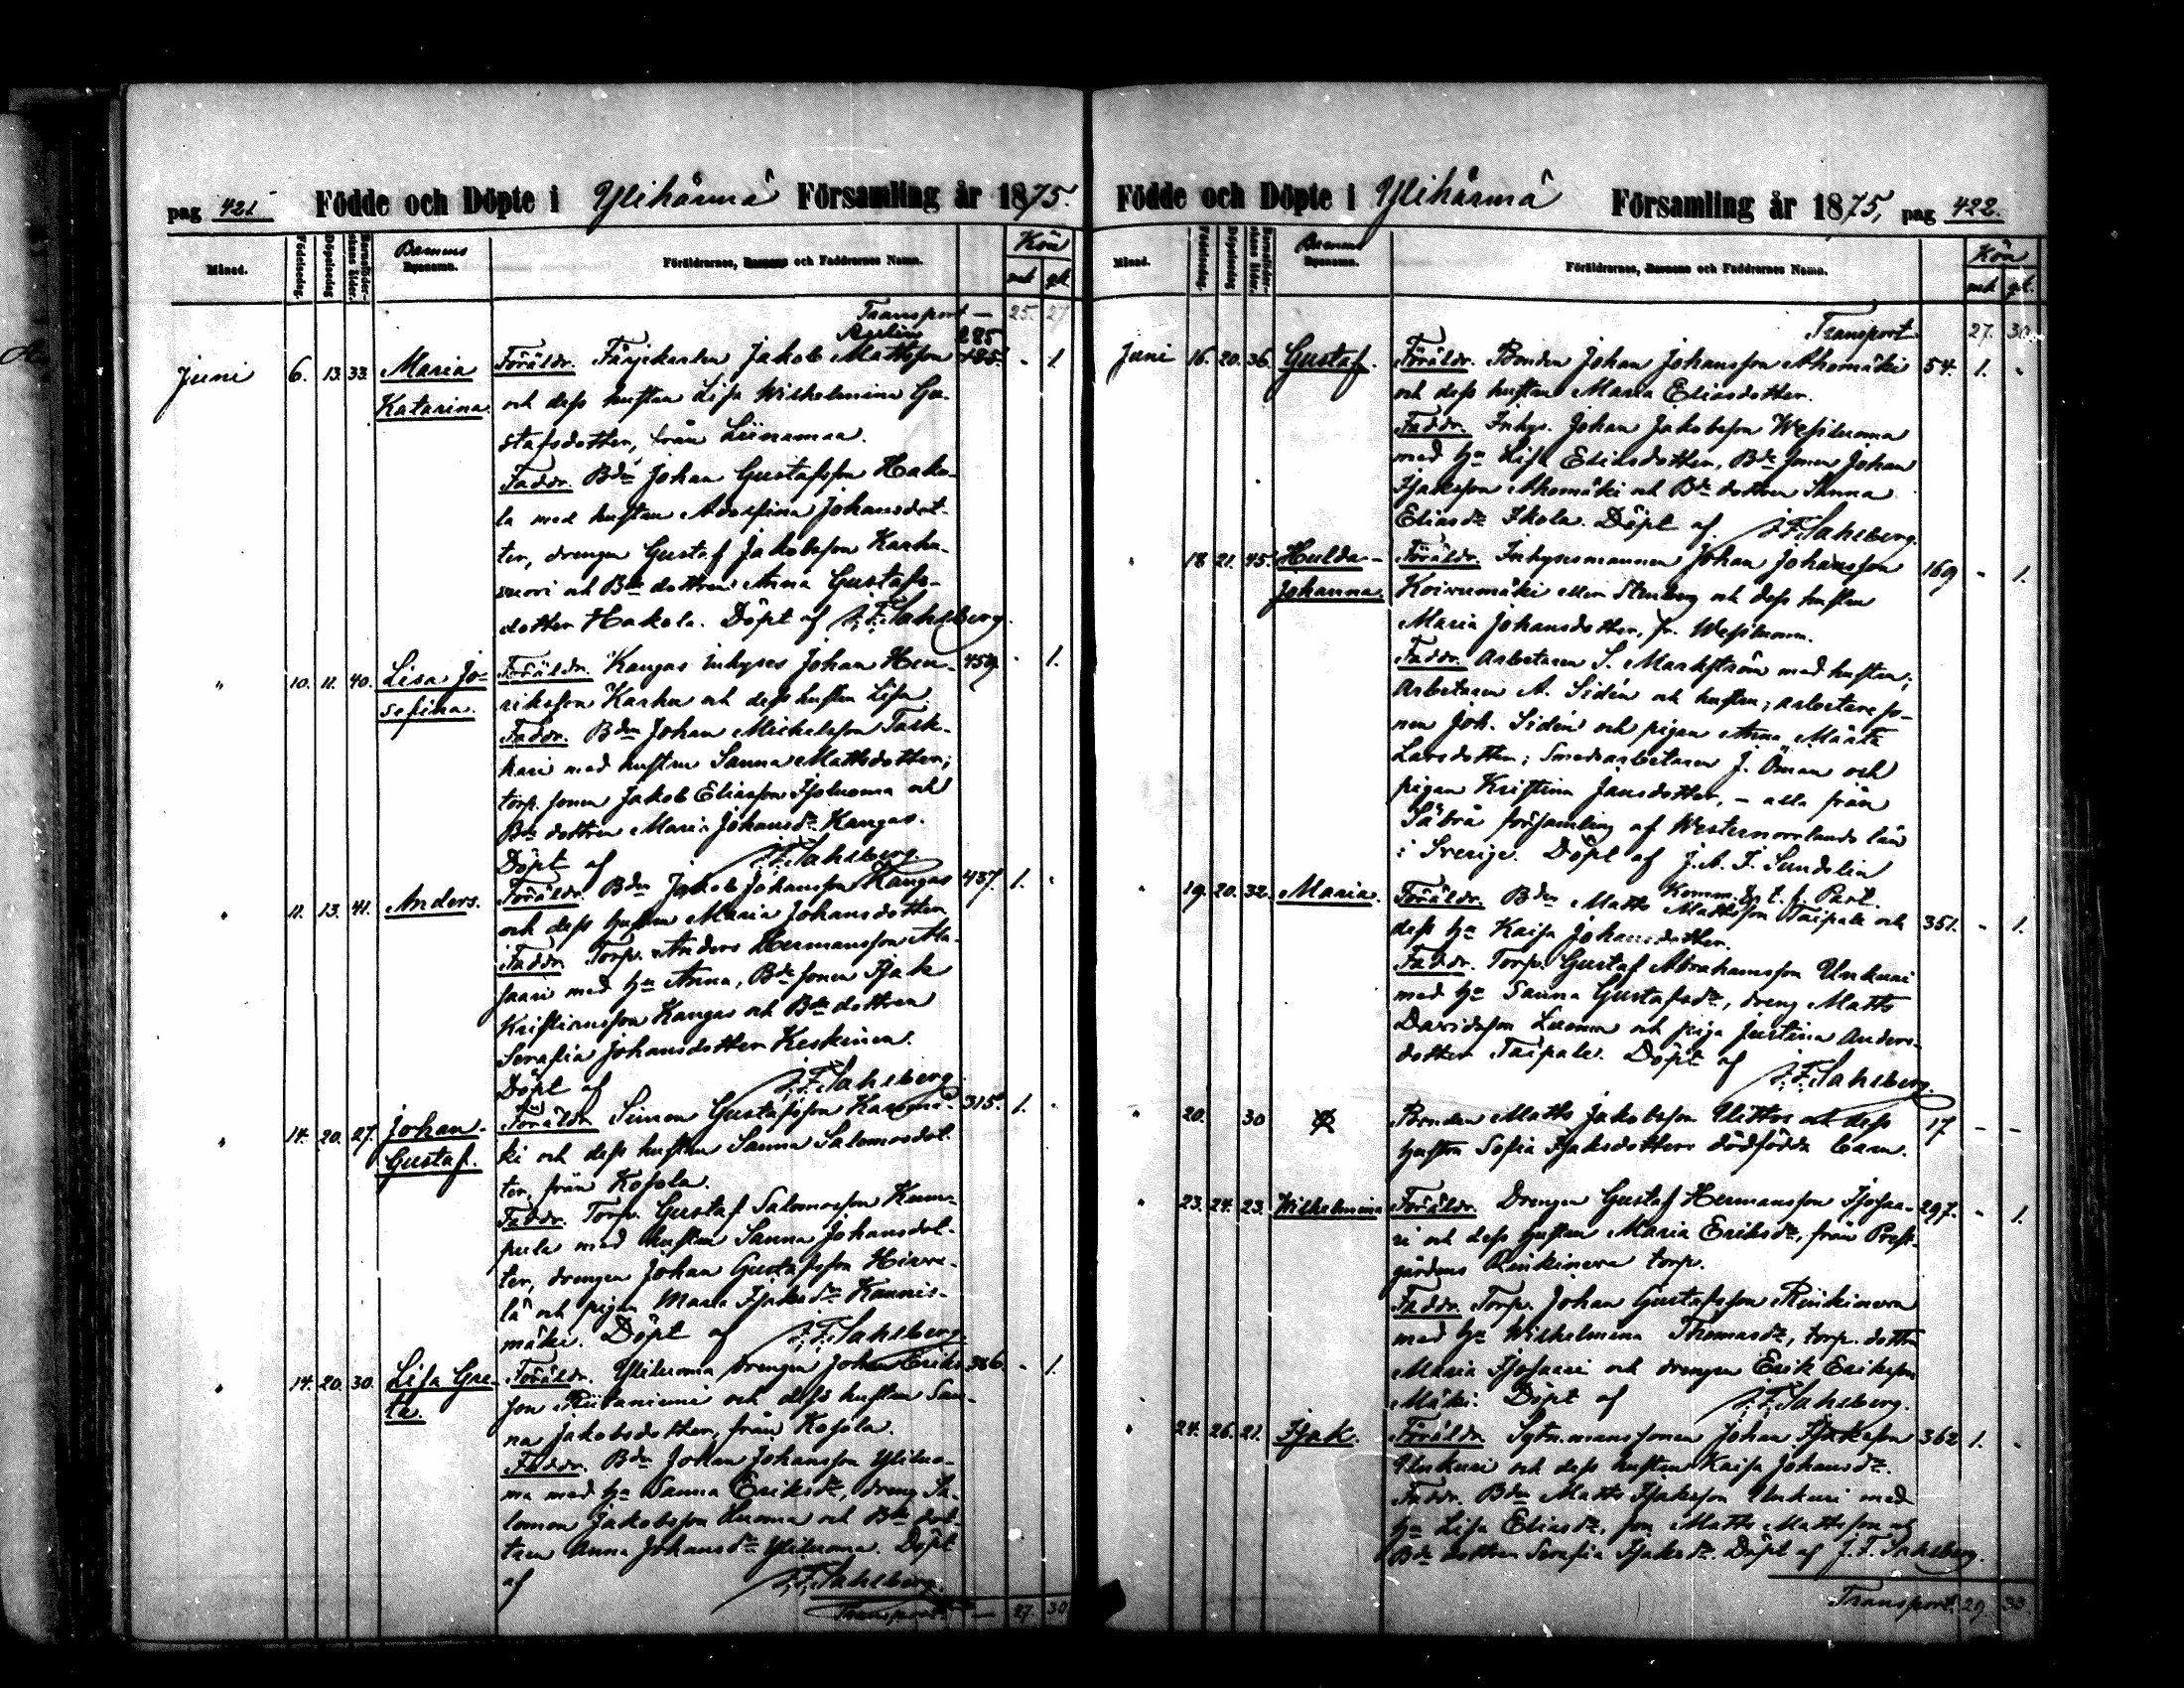 pag 421 Födde och Döpte i Ylihärmä Församling år 1875.
Månad. Födelsedag. Döpelsedag Barnaföder-skans ålder. Barnens Byanamn. Föräldrarnes, Barnens och Faddrarnes Namn. Kön
mk qk
Transport — 25. 27
285
Juni 6. 13. 33. Maria Föräldr. Färjekarlen Jakob Mattsson 185. - 1
Katarina. och dess hustru Lisa Wilhelmina Gu-
stafsdotter, från Liinamaa.
Faddr. Bdn Johan Gustafsson Haka-
la med hustru Adolfina Johansdot-
ter, drengen Gustaf Jakobsson Karhu-
suori och Bde dottren Anna Gustafs-
dotter Hakola. Döpt af J. F. Sahlberg.
" 10. 11. 40. Lisa Jo- Föräldr. Kangas inhyses Johan Hen- 459. - 1.
sefina. riksson Karhu och dess hustru Lisa
Faddr. Bdn Johan Michelsson Task-
kari med hustru Sanna Mattsdotter;
torp. sonen Jakob Eliasson Isoluoma och
Bde dottren Maria Johansdr Kangas.
Döpt af J. F. Sahlberg.
" 11. 13. 41. Anders. Föräldr. Bdn Jakob Johansson Kangas 437. 1. "
och dess hustru Maria Johansdotter
Faddr. Torp. Anders Hermansson Ala-
saari med hu Anna, Bde sonen Isak
Kristiansson Kangas och Bde dottren
Serafia Johansdotter Keskinen.
Döpt af J. F. Sahlberg.
" 14. 20. 27. Johan- Föräldr. Simon Gustafsson Kangmä- 315. 1. "
Gustaf. ki och dess hustru Sanna Salomonsdot-
ter, från Kosola.
Faddr. Torp. Gustaf Salomonsson Kum-
pula med hustru Sanna Johansdot-
ter, drengen Johan Gustafsson Hirve-
lä och pigan Maria Isaksdr Kaunis-
mäki. Döpt af J. F. Sahlberg.
" 14. 20. 30. Lisa Gre- Föräldr. Yliluoma drengen Johan Eriks- 386. - 1.
ta. son Riitaniemi och dess hustru San-
na Jakobsdotter, från Kosola.
Faddr. Bdn Johan Johansson Yliluo-
ma med hu Sanna Eriksdr, dreng Sa-
lomon Jakobsson Luoma och Bde dot-
tren Anna Johansdr Yliluoma. Döpt
af J. F. Sahlberg.
Transport — 27. 30
Födde och Döpte i Ylihärmä Församling år 1875, pag 422.
Månad. Födelsedag. Döpelsedag Barnaföder-skans ålder. Barnens Byanamn. Föräldrarnes, Barnens och Faddrarnes Namn. Kön
mk. qk.
Transport 27. 30
Juni 16. 20. 36. Gustaf. Föräldr. Bonden Johan Johansson Ahomäki 54. 1. "
och dess hustru Maria Eliasdotter.
Faddr. Inhys. Johan Jakobsson Wesiluoma
med hu Lisa Eliasdotter, Bde sonen Johan
Isaksson Ahomäki och Bde dottren Sanna
Eliasdr Ikola. Döpt af J. F. Sahlberg.
" 18 21. 45. Hulda- Föräldr. Inhysesmannen Johan Johansson 169 - 1.
Johanna. Koivumäki eller Stenberg och dess hustru
Maria Johansdotter, fr. Wesiluoma.
Faddr. Arbetaren S. Markström med hustru;
Arbetaren A. Sidén och hustru; arbetare so-
nen Joh. Sidén och pigan Anna Märta
Larsdotter; Smedsarbetaren J. Öman och
pigan Kristina Jansdotter, - alla från
Säbrå församling af Westernorrlands län
i Sverige. Döpt af J. A. F. Sundelin
Komm. & t. f. Past.
" 19. 20. 32. Maria. Föräldr. Bdn Matts Mattsson Taipale och 351. - 1.
dess hu Kaisa Johansdotter.
Faddr. Torp. Gustaf Abrahamsson Unkuri
med hu Sanna Gustafsdr, dreng Matts
Davidsson Luoma och piga Justina Anders-
dotter Taipale. Döpt af
J. F. Sahlberg.
" 20. 30 Bonden Matts Jakobsson Ylittos och dess 17 - -
hustru Sofia Isaksdotters dödfödda barn.
" 23. 24. 23. Wilhelmina Föräldr. Drengen Gustaf Hermansson Isosaa- 297. - 1.
ri och dess hustru Maria Eriksdr, från Prest-
gårdens Rinkineva torp.
Faddr. Torp. Johan Gustafsson Rinkineva
med hu Wilhelmina Thomasdr, torp. dottren
Maria Isosaari och drengen Erik Eriksson
Mäki. Döpt af J. F. Sahlberg.
" 24. 26. 21. Isak. Föräldr. Sytn.manssonen Johan Isaksson 362 1. "
Unkuri och dess hustru Kaisa Johansdr.
Faddr. Bdn Matts Isaksson Unkuri med
hu Lisa Eliasdr, son Matts Mattsson och
Bde dottren Serafia Isaksdr. Döpt af J. F. Sahlberg.
Transport. 29 33